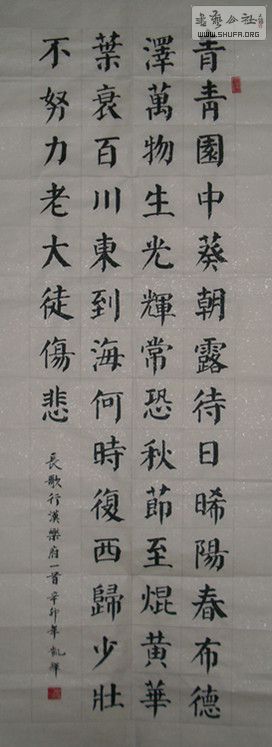 青青園中葵朝露待日晞陽春布德
澤萬物生光輝常恐秋節至焜黃華
葉衰百川東到海何時復西歸少壯
不努力老大徒傷悲
長歌行漢樂府一首辛卯年凱輝
書藝公社
WWW.SHUFA.ORG